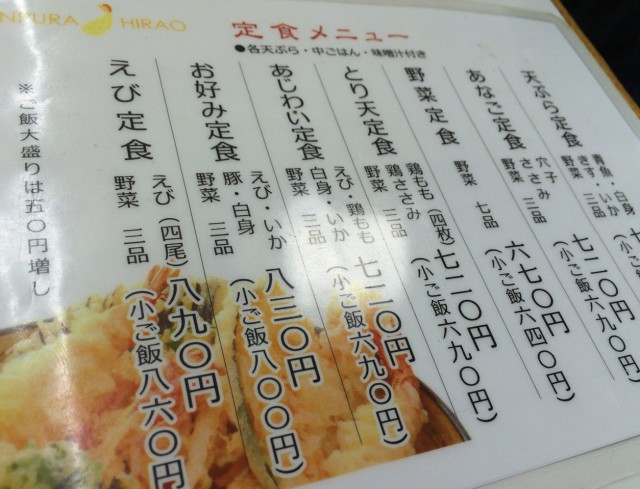 NPURA HIRAO
定食メニュー
●各天ぷら・中ごはん・味噌汁付き
天ぷら定食
青魚・白身
きす・いか
野菜 三品
あなご定食
穴子
ささみ
野菜 三品
七二〇円
(小ご飯六九〇
野菜定食
野菜 七品
六七〇円
(小ご飯六四〇円)
とり天定食
鶏もも(四枚)
鶏ささみ
野菜 三品
七二〇円
(小ご飯六九〇円)
あじわい定食
えび・鶏もも
白身・いか
野菜 三品
七二〇円
(小ご飯六九〇円)
お好み定食
えび・いか
豚・白身
野菜 三品
八三〇円
(小ご飯八〇〇円)
えび定食
えび(四尾)
野菜 三品
八九〇円
(小ご飯八六〇円)
※ご飯大盛りは五〇円増し